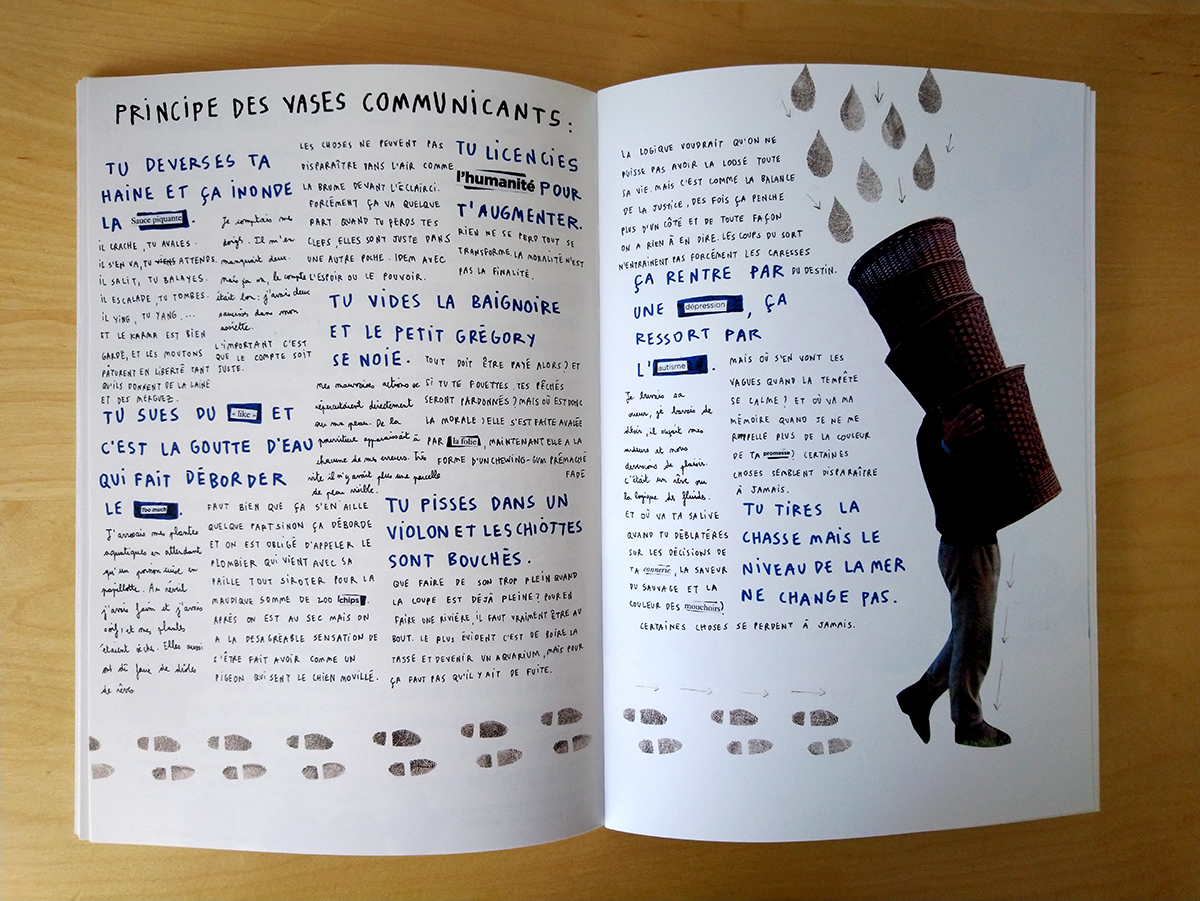 PRINCIPE DES VASES COMMUNICANTS :
TU DEVERSES TA
HAINE ET ÇA INONDE
LA Sauce piquante .
IL CRACHE, TU AVALES.
IL S'EN VA, TU VIENS ATTENDS.
IL SALIT, TU BALAYES.
IL ESCALADE, TU TOMBES.
IL YING, TU YANG, ...
ET LE KARMA EST BIEN
GARDÉ, ET LES MOUTONS
PÂTURENT EN LIBERTÉ TANT
QU'ILS DONNENT DE LA LAINE
ET DES MERGUEZ.
Je comptais mes
doigts. Il m'en
manquait deux.
mais ça va, le compte
était bon : j'avais deux
saucisses dans mon
assiette.
L'IMPORTANT C'EST
QUE LE COMPTE SOIT
JUSTE.
LES CHOSES NE PEUVENT PAS
DISPARAÎTRE DANS L'AIR COMME
LA BRUME DEVANT L'ÉCLAIRCI.
FORCÉMENT ÇA VA QUELQUE
PART. QUAND TU PERDS TES
CLEFS, ELLES SONT JUSTE DANS
UNE AUTRE POCHE. IDEM AVEC
L'ESPOIR OU LE POUVOIR.
TU LICENCIES
l'humanité POUR
T'AUGMENTER.
RIEN NE SE PERD TOUT SE
TRANSFORME, LA MORALITÉ N'EST
PAS LA FINALITÉ.
TU VIDES LA BAIGNOIRE
ET LE PETIT GRÉGORY
SE NOIE.
mes mauvaises actions se
répercutaient directement
sur ma peau. De la
pourriture apparaissait à
chacune de mes erreurs. Très
vite il n'y avait plus une parcelle
de peau visible.
TOUT DOIT ÊTRE PAYÉ ALORS ? ET
SI TU TE FOUETTES, TES PÊCHÉS
SERONT PARDONNÉS ? MAIS OÙ EST DONC
LA MORALE ? ELLE S'EST FAITE AVALÉE
PAR la folie, MAINTENANT ELLE A LA
FORME D'UN CHEWING-GUM PRÉMACHÉ
FADE
TU SUES DU « like » ET
C'EST LA GOUTTE D'EAU
QUI FAIT DÉBORDER
LE Too much .
J'arrosais mes plantes
aquatiques en attendant
qu'un poisson cuise en
papillotte. Au réveil
j'avais faim et j'avais
soif, et mes plantes
étaient sèches. Elles aussi
ont dû faire de drôles
de rêves
FAUT BIEN QUE ÇA S'EN AILLE
QUELQUE PART SINON ÇA DÉBORDE
ET ON EST OBLIGÉ D'APPELER LE
PLOMBIER QUI VIENT AVEC SA
PAILLE TOUT SIROTER POUR LA
MAUDIQUE SOMME DE 200 chips.
APRÈS ON EST AU SEC MAIS ON
A LA DESAGRÉABLE SENSATION DE
S'ÊTRE FAIT AVOIR COMME UN
PIGEON QUI SENT LE CHIEN MOUILLÉ.
TU PISSES DANS UN
VIOLON ET LES CHIOTTES
SONT BOUCHÉS.
QUE FAIRE DE SON TROP PLEIN QUAND
LA COUPE EST DÉJÀ PLEINE ? POUR EN
FAIRE UNE RIVIÈRE, IL FAUT VRAIMENT ÊTRE AU
BOUT. LE PLUS ÉVIDENT C'EST DE BOIRE LA
TASSE ET DEVENIR UN AQUARIUM, MAIS POUR
ÇA FAUT PAS QU'IL Y AIT DE FUITE.
LA LOGIQUE VOUDRAIT QU'ON NE
PUISSE PAS AVOIR LA LOOSE TOUTE
SA VIE. MAIS C'EST COMME LA BALANCE
DE LA JUSTICE, DES FOIS ÇA PENCHE
PLUS D'UN CÔTÉ ET DE TOUTE FAÇON
ON A RIEN À EN DIRE. LES COUPS DU SORT
N'ENTRAINENT PAS FORCÉMENT LES CARESSES
DU DESTIN.
ÇA RENTRE PAR
UNE dépression , ÇA
RESSORT PAR
L' autisme .
Je buvais sa
sueur, je buvais de
désir, il
et nous
de plaisir.
c'était un rêve ou
la logique des fluides.
ET OÙ VA TA SALIVE
QUAND TU DÉBLATÈRES
SUR LES DÉCISIONS DE
TA connerie, LA SAVEUR
DU SAUVAGE ET LA
COULEUR DES mouchoirs ?
CERTAINES CHOSES SE PERDENT À JAMAIS.
MAIS OÙ S'EN VONT LES
VAGUES QUAND LA TEMPÊTE
SE CALME ? ET OÙ VA MA
MÉMOIRE QUAND JE NE ME
RAPPELLE PLUS DE LA COULEUR
DE TA promesse ? CERTAINES
CHOSES SEMBLENT DISPARAÎTRE
À JAMAIS.
TU TIRES LA
CHASSE MAIS LE
NIVEAU DE LA MER
NE CHANGE PAS.